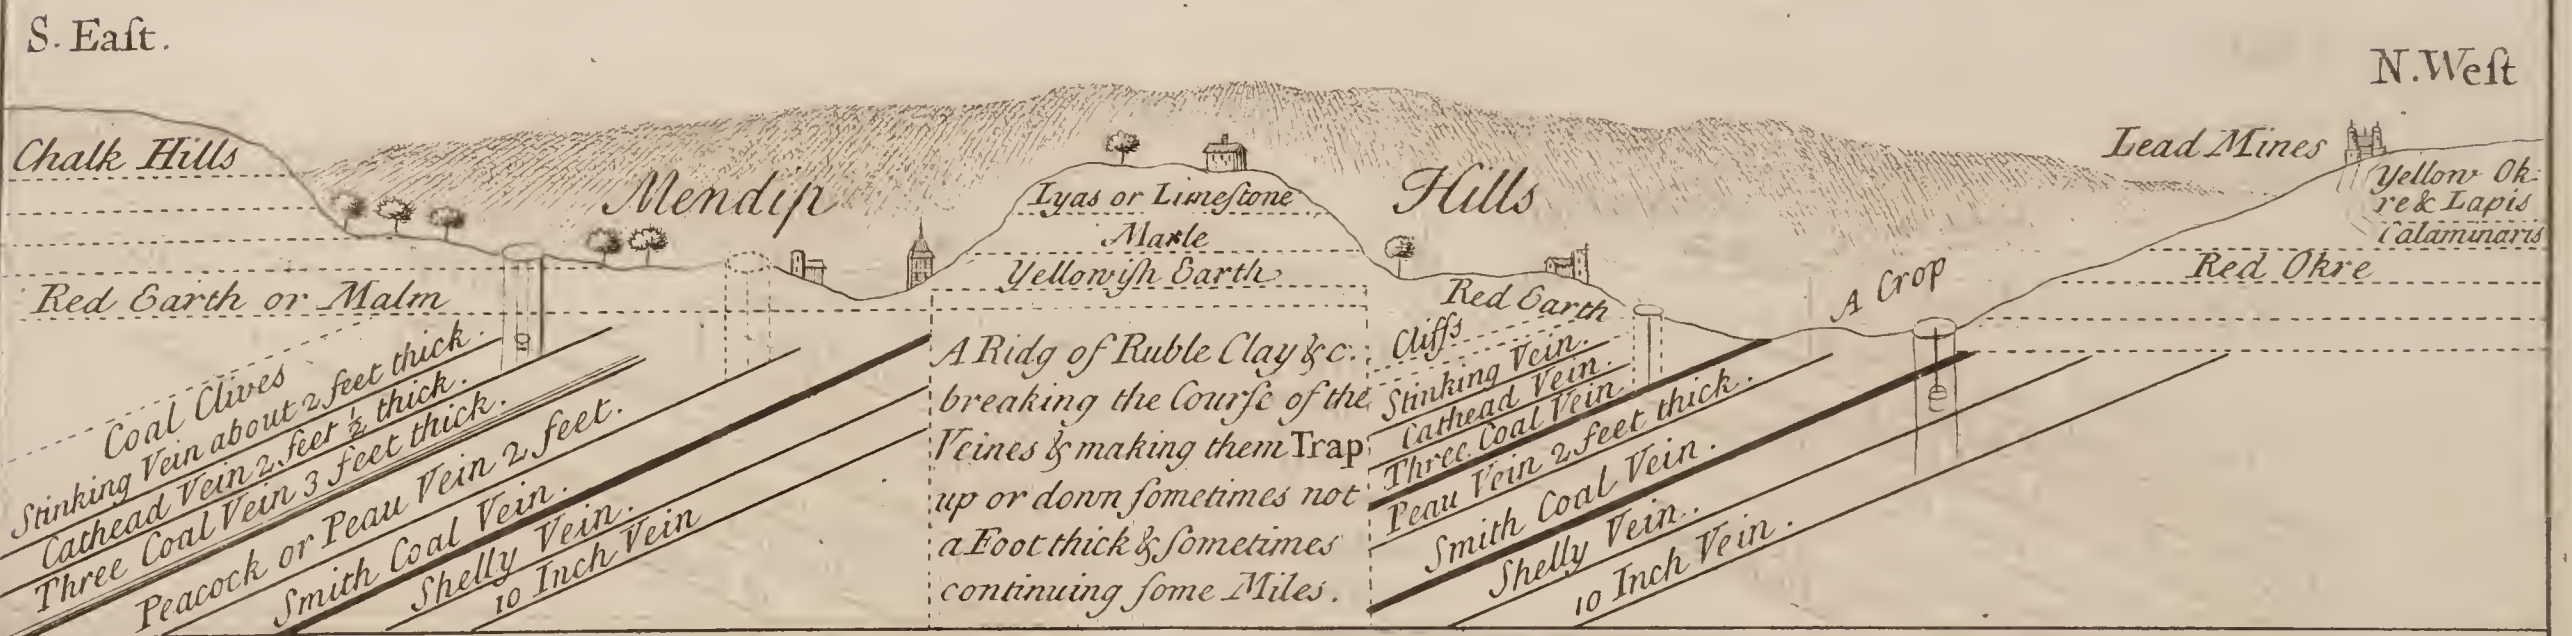 S. Eaſt.
N. Weſt
Chalk Hills
Mendip Hills
Lead Mines
Yellow Ok-
re & Lapis
Calaminaris
Red Okre
Lyas or Limeſtone
Marle
Yellowiſh Earth
Red Earth or Malm
Coal Clives
Stinking Vein about 2 feet thick.
Cathead Vein 2 feet ½ thick.
Three Coal Vein 3 feet thick.
Peacock or Peau Vein 2 feet.
Smith Coal Vein.
Shelly Vein.
10 Inch Vein
A Ridg of Ruble Clay &c.
breaking the Courſe of the
Veines & making them Trap
up or down ſometimes not
a Foot thick & ſometimes
continuing ſome Miles.
Red Earth
Cliffs
Stinking Vein.
Cathead Vein.
Three Coal Vein
Peau Vein 2 feet thick.
Smith Coal Vein.
Shelly Vein.
10 Inch Vein.
A Crop